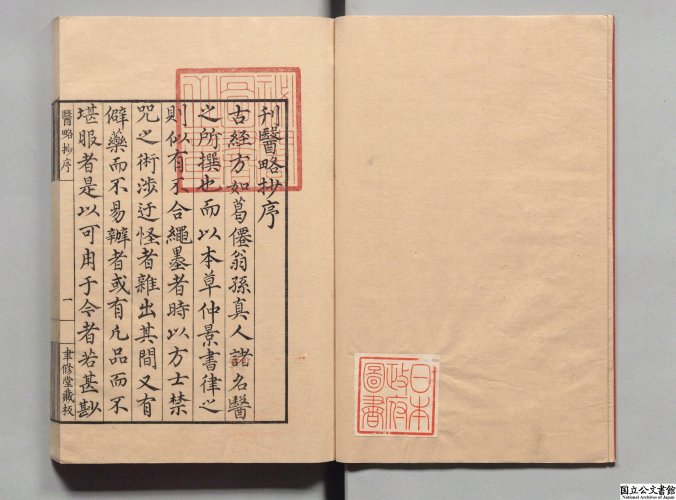 刊醫略抄序
古經方如葛僊翁孫真人諸名醫
之所撰也而以本草仲景書律之
則似有不合繩墨者時以方士禁
咒之術涉迂怪者雜出其間又有
僻藥而不易辨者或有凡品而不
堪服者是以可用于今者若甚尠
醫略抄序
一
聿修堂藏板
日本
政府
圖書
国立公文書館
National Archives of Japan